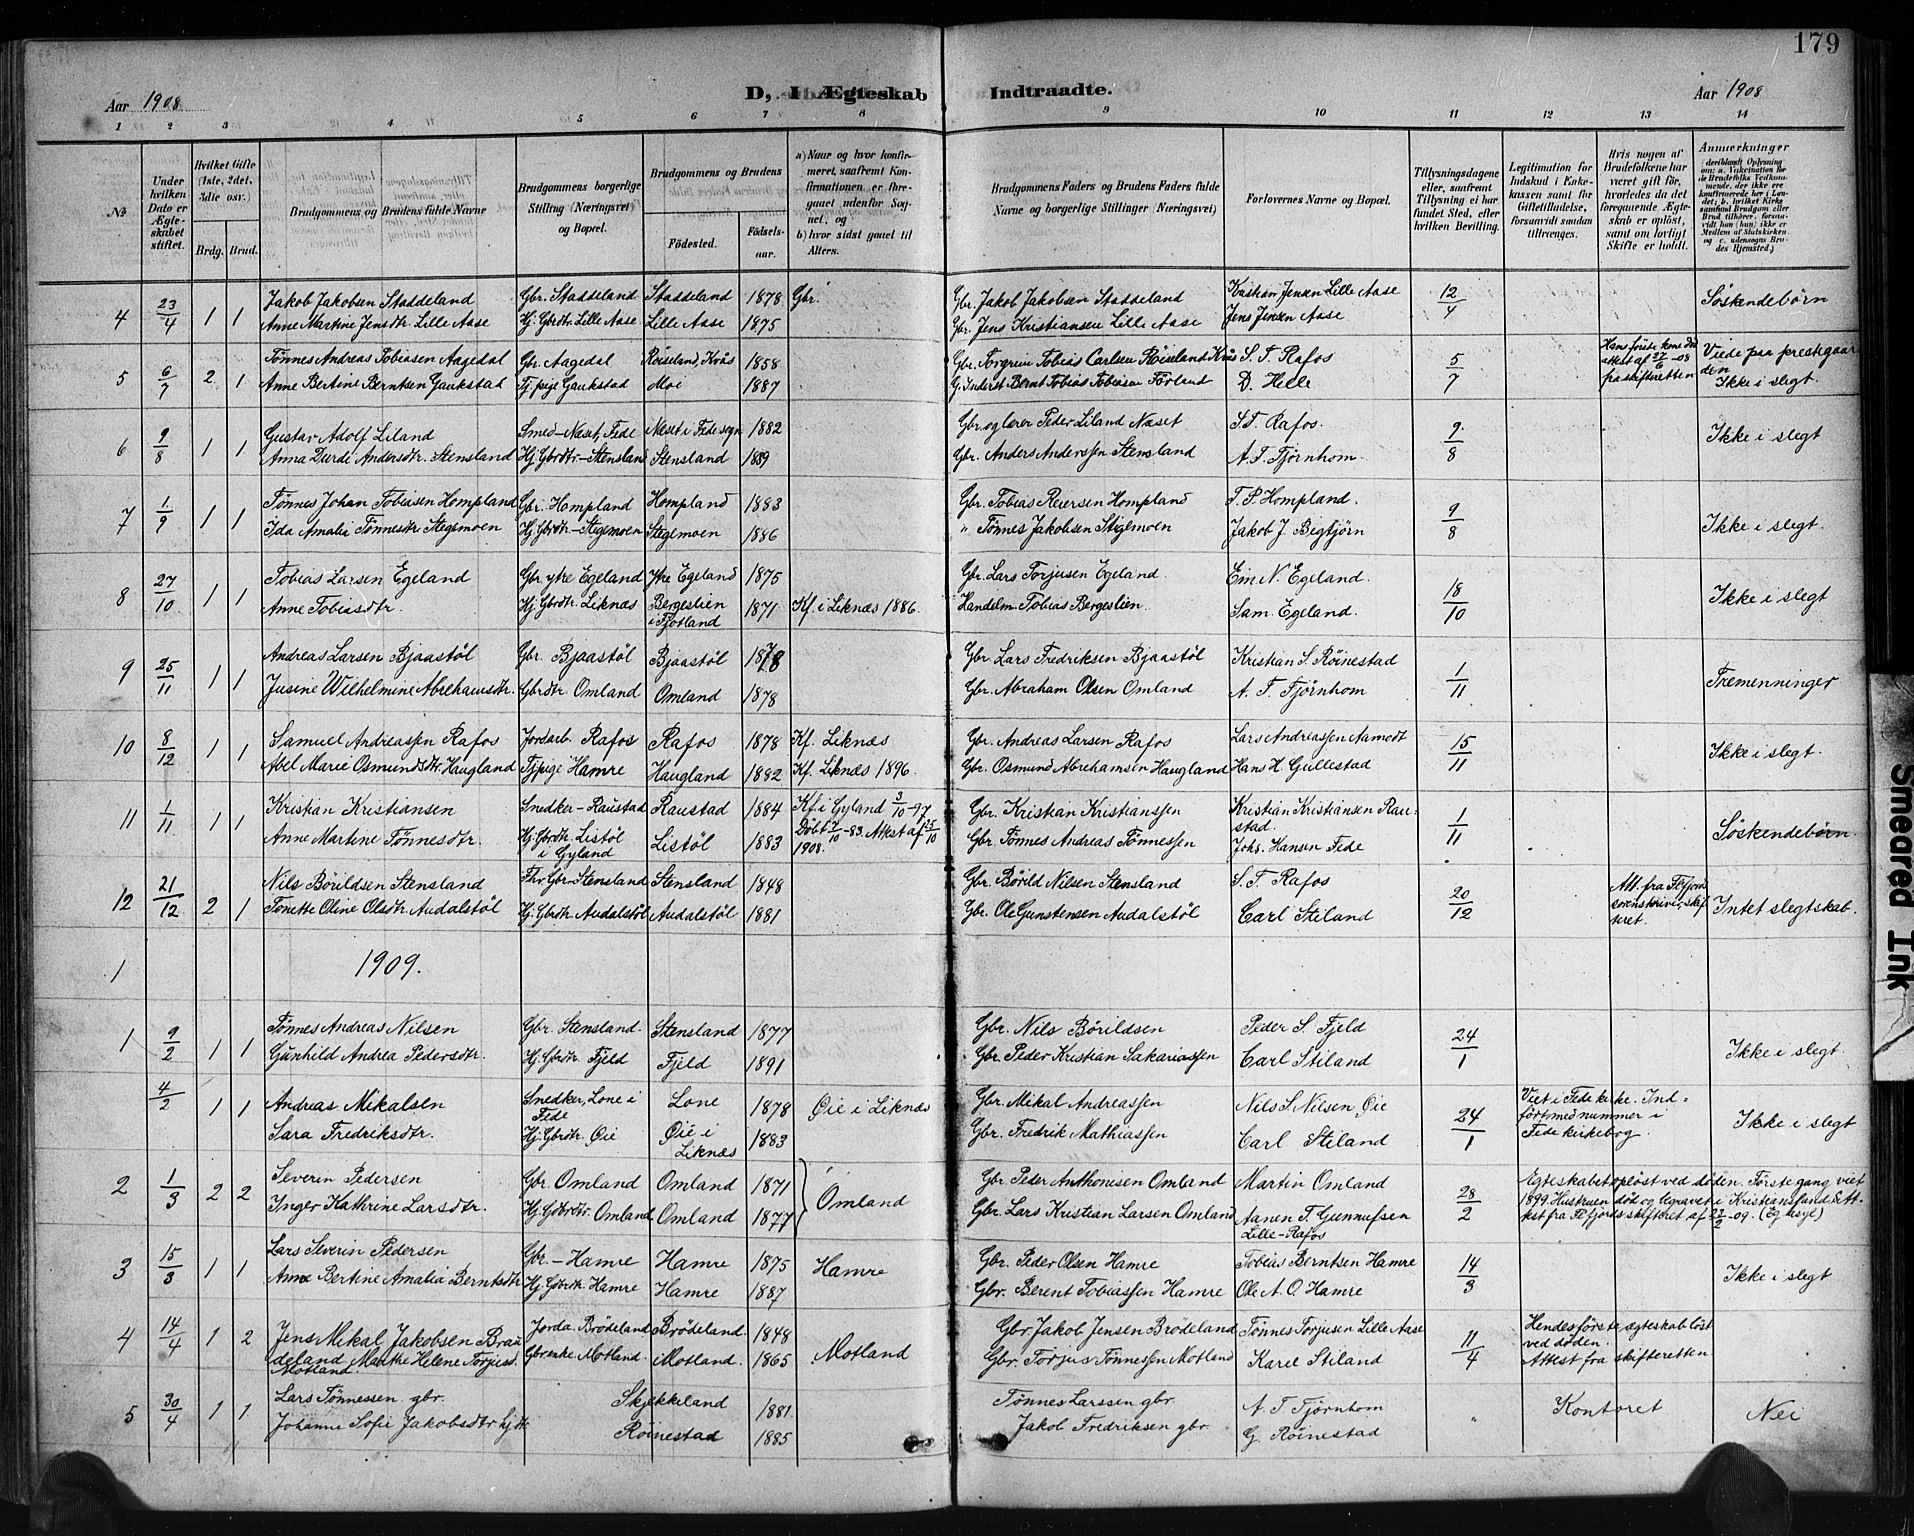 179
Aar 1908
D, I Ægteskab Indtraadte.
Aar 1908
1 2 3 4 5 6 7 8 9 10 11 12 13 14
No
Under hvilken Dato er Ægteskabet stiftet.
Hvilket Gifte (1ste, 2det, 3die osv.)
Brdg. Brud.
Brudgommens og Brudens fulde Navne
Brudgommens borgerlige Stilling (Næringsvei) og Bopæl.
Brudgommens og Brudens
Fødested.
Fødselsaar.
a) Naar og hvor konfirmeret, saafremt Konfirmationen er foregaaet udenfor Sognet, og
b) hvor sidst gaaet til Alters.
Brudgommens Faders og Brudens Faders fulde Navne og borgerlige Stillinger (Næringsvei)
Forlovernes Navne og Bopæl.
Tillysningsdagene eller, saafremt Tillysning ei har fundet Sted, efter hvilken Bevilling.
Legitimation for Indskud i Enkekassen samt for Giftetilladelse, forsaavidt saadan tiltrænges.
Hvis nogen af Brudefolkene har været gift før, hvorledes da det foregaaende Ægteskab er opløst, samt om lovligt Skifte er holdt.
Anmerkninger
4 23/4 1 1 Jakob Jakobsen Staddeland Gbr. Staddeland Staddeland 1878 Gbr. Gbr. Jakob Jakobsen Staddeland Kristian Jensen Lille Aase 12/4 Söskendebörn
Anne Martine Jensdtr. Lille Aase Hj. Gbrdtr. Lille Aase Lille Aase 1875 Gbr. Jens Kristiansen Lille Aase Jens Jensen Aase
5 6/7 2 1 Tønnes Andreas Tobiasen Aagedal Gbr. Aagedal Röiseland, Kvås 1858 Gbr. Torgrim Tobias Carlsen Röiseland Kvås S. T. Rafos 5/7 Hans förste kone död attest af 27/6 -08 fra skifteretten Viede paa prestegaarden
Anne Bertine Berntsen Gaukstad Tj. pige Gaukstad Moi 1887 G. Inderst Bernt Tobias Tobiasen Förland D. Helle Ikke i slegt.
6 9/8 1 1 Gustav Adolf Liland Smed - Næset, Fede Næset i Fede sogn 1882 Gbr. og lærer Peder Liland Næset S.T. Rafos. 9/8 Ikke i slegt
Anna Durdi Andersdtr. Stensland Hj. Gbrdtr. - Stensland Stensland 1889 Gbr. Anders Anderssen Stensland A. T. Fjörnhom.
7 1/9 1 1 Tønnes Johan Tobiasen Hompland Gbr. Hompland Hompland 1883 Gbr. Tobias Reiersen Hompland T. P. Hompland. 9/8 Ikke i slegt.
Ida Amalia Tønnesdtr. Stegemoen Hj. Gbrdtr. - Stegemoen Stegemoen 1886 " Tønnes Jakobsen Stigemoen Jakob J. Bigtjörn
8 27/10 1 1 Tobias Larsen Egeland Gbr. ytre Egeland Ytre Egeland 1875 Gbr. Lars Torjusen Egeland. Ein. N. Egeland. 18/10 Ikke i slegt
Anne Tobiasdtr. Hj. Gbrdtr. Liknæs Bergeslien i Fjotland 1871 Kf. i Liknæs 1886. Handelm. Tobias Bergeslien. Sam. Egeland.
9 25/11 1 1 Andreas Larsen Bjaastöl Gbr. Bjaastöl Bjaastöl 1878 Gbr. Lars Fredriksen Bjaastöl Kristian S. Röinestad 1/11 Tremenninger
Jusine Wilhelmine Abrehamsdtr. Gbrdtr. Omland Omland 1878 Gbr. Abraham Olsen Omland A. T. Fjörnhom
10 8/12 1 1 Samuel Andreassen Rafos Jordarb. Rafos Rafos 1878 Kf. Liknæs Gbr. Andreas Larsen Rafos Lars Andreassen Aamodt 15/11 Ikke i slegt.
Abel Marie Osmundsdtr. Haugland Tj pige Hamre Haugland 1882 Kf. Liknæs 1896. Gbr. Osmund Abrehamsen Haugland Hans H. Gullestad
11 1/11 1 1 Kristian Kristiansen Snedker - Raustad Raustad 1884 Kf. i Gyland 3/10 -97 Gbr. Kristian Kristianssen Kristian Kristiansen Raustad. 1/11 Söskendebörn.
Anne Martine Tønnesdtr. Hj. Gbrdtr. Listöl i Gyland Listöl 1883 Döbt 7/10 -83. Attest af 25/10 1908. Gbr. Tønnes Andreas Tønnessen Johs. Hansen Fede
12 21/12 2 1 Nils Börildsen Stensland Fhv. Gbr. Stensland Stensland 1848 Gbr. Börild Nilsen Stensland S. T. Rafos 20/12 Att. fra Fefjord sorenskriver, skifteret. Intet slegtskab.
Tonette Oline Olsdtr. Audalstöl Hj. Gbrdtr. Audalstöl Audalstöl 1881 Gbr. Ole Gunstensen Audalstöl Carl Stiland
1 1909.
1 9/2 1 1 Tønnes Andreas Nilsen Gbr. Stensland. Stensland 1877 Gbr. Nils Börildsen Peder S. Fjeld 24/1 Ikke i slegt.
Gunhild Andrea Pedersdtr. Hj. Gbrdtr. Fjeld Fjeld 1891 Gbr. Peder Kristian Sakariassen Carl Stiland
4/2 1 1 Andreas Mikalsen Snedker, Lone i Fede Lone 1878 Øie i Liknæs Gbr. Mikal Andreassen Nils S. Nilsen, Øie 24/1 Viet i Fede kirke. Indført med nummer i Fede kirkebog. Ikke i slegt
Sara Fredriksdtr. Hj. Gbrdtr. Øie Øie i Liknæs 1883 Gbr. Fredrik Mathiassen Carl Stiland
2 1/3 2 2 Severin Pedersen Gbr. Omland Omland 1871 Omland Gbr. Peder Anthonisen Omland Martin Omland 28/2 Egteskabet opløst ved döden. Förste gang viet 1899. Hustruen död og begravet i Kristiansand S. Attest fra Fefjords skifteret af 23/2 -09. (Eg asyl)
Inger Kathrine Larsdtr. Hj. Gbrdtr. Omland Omland 1877 Gbr. Lars Kristian Larsen Omland Aanen T. Gunnufsen Lille-Rafos
3 15/3 1 1 Lars Severin Pedersen Gbr. - Hamre Hamre 1875 Hamre Gbr. Peder Olsen Hamre Tobias Berntsen Hamre 14/3 Ikke i slegt
Anne Bertine Amalia Berntsdtr Hj. Gbrdtr. Hamre Hamre 1887 Gbr. Berent Tobiassen Hamre Ole A. O. Hamre
4 14/4 1 2 Jens Mikal Jakobsen Braudeland Jorda. Brödeland Brödeland. 1848 Motland Gbr. Jakob Jensen Brödeland Tønnes Torjusen Lille Aase 11/4 Hendes förste ægteskab löst ved döden. Attest fra skifteretten
Marthe Helene Torjusd. Motland. Gbrenke Motland. Motland. 1865 Gbr. Torjus Tønnessen Motland Karel Stiland
5 30/4 1 1 Lars Tønnessen gbr. Skjekkeland 1881 Tønnes Larssen gbr. A. T. Fjörnhom " Kontoret Nei
Johanne Sofie Jakobsdtr hj dtr Röinestad 1885 Jakob Fredriksen gbr. G. Röinestad
Smeared Ink